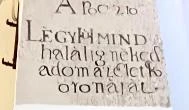 APOC 2 10
LEGY HŰ MIND
halálig neked
adom az elet k
oronájat.